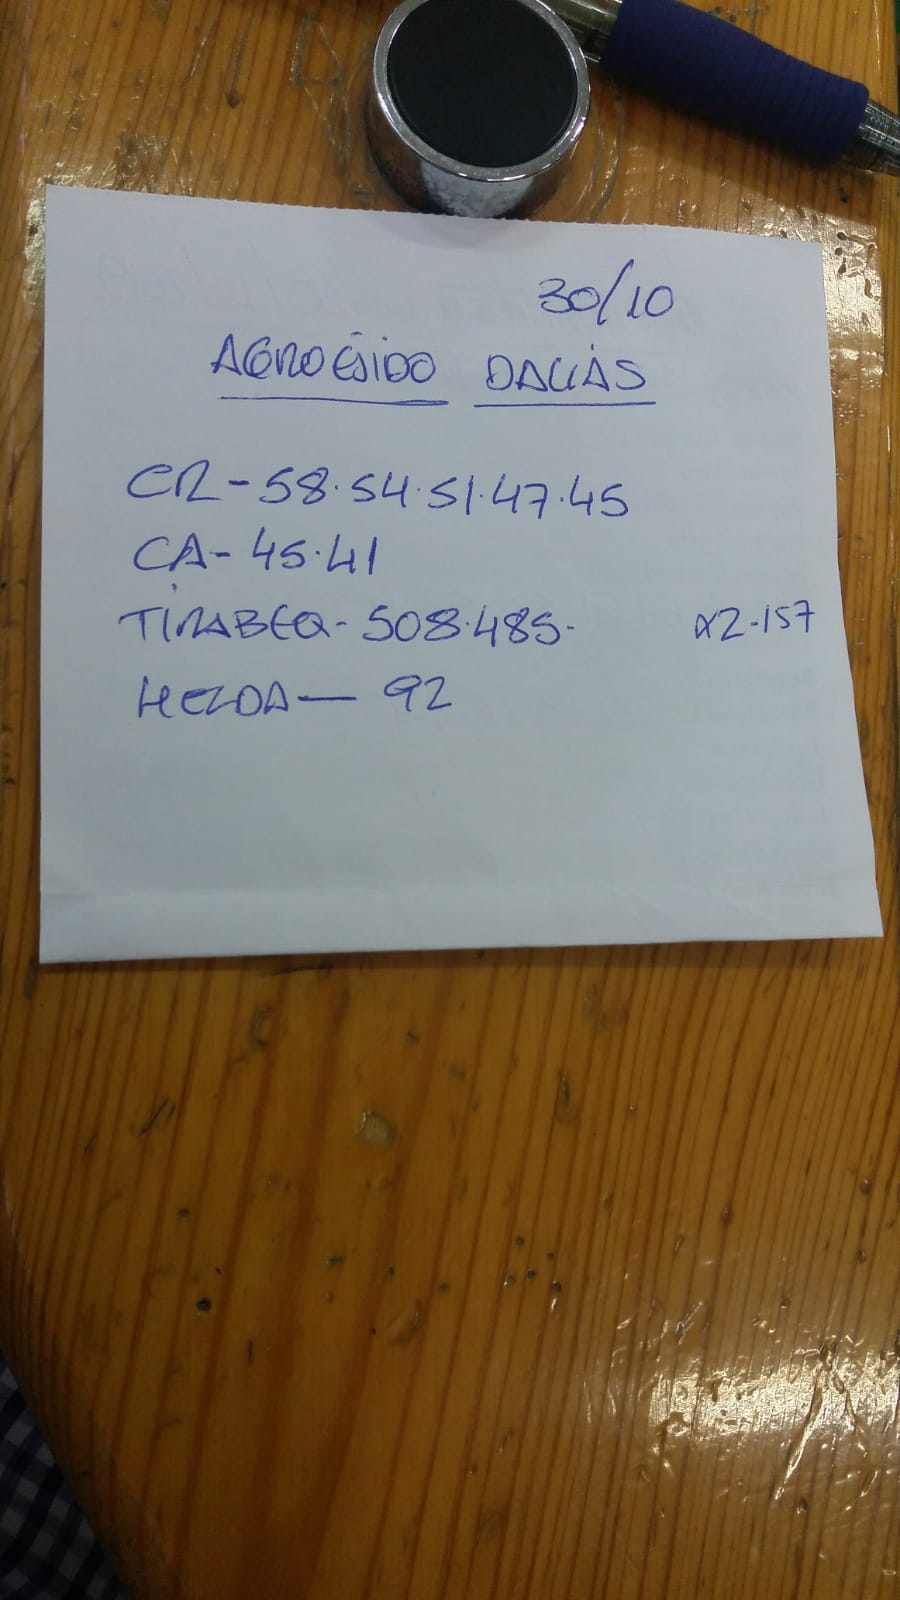 30/10
AGROEJIDO DALÍAS
CR-58.54.51.47.45
CA-45.41
TIRABEQ-508.485- X2-157
HELDA—92